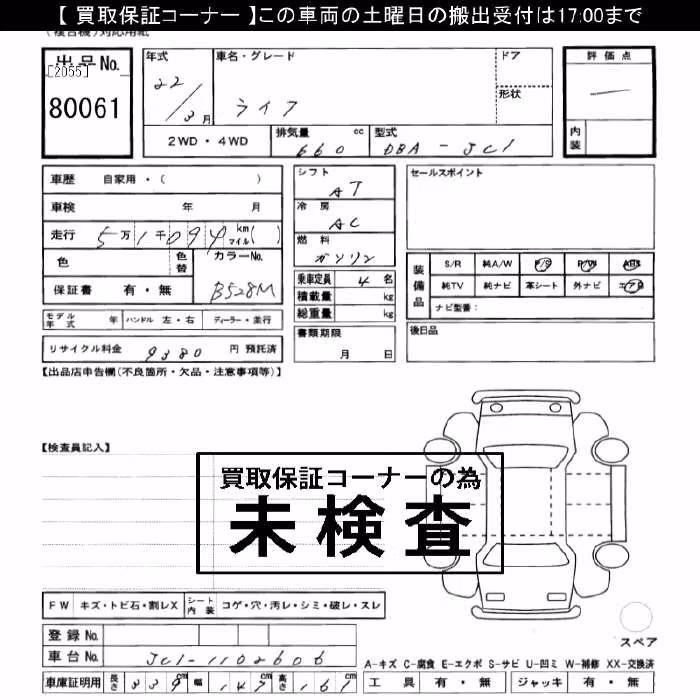 【 買取保証コーナー 】この車両の土曜日の搬出受付は17:00まで
(複合機)対応用紙
出品No.
[2055]
80061
年式
22/3月
車名・グレード
ライフ
ドア
形状
評価点
内装
2WD・4WD
排気量 660 cc
型式 DBA-JC1
車歴 自家用・( )
車検 年 月
走行 5万1千094 km マイル( )
色 色替 カラーNo.
B528M
保証書 有・無
シフト
AT
冷房
AC
燃料
ガソリン
乗車定員 4名
積載量 kg
総重量 kg
書類期限
月 日
セールスポイント
装備品
S/R 純A/W P/S P/W ABS
純TV 純ナビ 革シート 外ナビ エアB
ナビ型番:
後日品
モデル年式 年 ハンドル 左・右 ディーラー・並行
リサイクル料金 9380 円 預託済
【出品店申告欄(不良箇所・欠品・注意事項等)】
【検査員記入】
買取保証コーナーの為
未検査
FW キズ・トビ石・割レX シート内装 コゲ・穴・汚レ・シミ・破レ・スレ
登録No.
車台No. JC1-1102606
車庫証明用 長さ 339 幅 147 高さ 161
スペア
A-キズ C-腐食 E-エクボ S-サビ U-凹ミ W-補修 XX-交換済
工具 有・無 ジャッキ 有・無